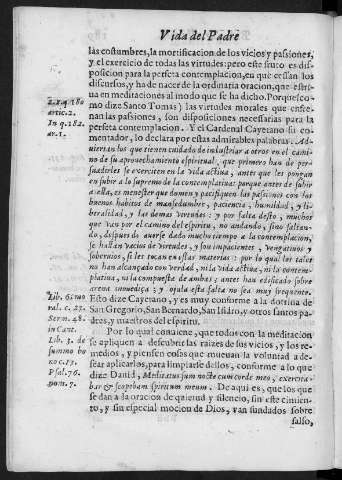 Vida del Padre
las costumbres, la mortificacion de los vicios y passiones,
y el exercicio de todas las virtudes: pero este fruto es dis-
posicion para la perfeta contemplacion, en que cessan los
discursos, y ha de nacer de la ordinaria oracion, que estri-
ua en meditaciones al modo que se ha dicho. Porque (co-
2.2.q.180
artic.2.
mo dize Santo Tomas) las virtudes morales que enfre-
In q.182.
ar.1.
nan las passiones, son disposiciones necessarias para la
perfeta contemplacion. Y el Cardenal Cayetano su co-
mentador, lo declara por estas admirables palabras. Ad-
uiertan los que tienen cuidado de industriar a otros en el cami-
no de su aprouechamiento espiritual, que primero han de per-
suadirles se exerciten en la vida actiua, antes que les pongan
en subir a lo supremo de la contemplatiua: porque antes de subir
a ella, es menester que domen y pacifiquen las passiones con los
buenos habitos de mansedumbre, paciencia, humildad, y li-
beralidad, y las demas virtudes: y por falta desto, muchos
que van por el camino del espiritu, no andando, sino saltan-
do, despues de auerse dado mucho tiempo a la contemplacion,
se hallan vacios de virtudes, y son impacientes, vengatiuos y
soberuios, si les tocan en estas materias: por lo qual los tales
no han alcançado con verdad, ni la vida actiua, ni la contem-
platiua, ni la compuesta de ambas; antes han edificado sobre
arena mouediça; y ojala esta falta no sea muy frequente.
Lib. 6. mo
ral. c. 25.
Serm. 48.
in Cant.
Lib. 3. de
summo bo
no c.15.
Psal. 76.
num. 7.
Esto dize Cayetano, y es muy conforme a la dotrina de
San Gregorio, San Bernardo, San Isidro, y otros santos pa-
dres, y maestros del espiritu.
Por lo qual conuiene, que todos con la meditacion
se apliquen a descubrir las raizes de sus vicios, y los re-
medios, y piensen cosas que mueuan la voluntad a de-
sear aplicarlos, para limpiarse dellos, conforme a lo que
dize Dauid, Meditatus sum nocte cum corde meo, exercita-
bar & scopebam spiritum meum. De aqui es, que los que
se dan a la oracion de quietud y silencio, sin este cimien-
to, y sin especial mocion de Dios, van fundados sobre
falso,